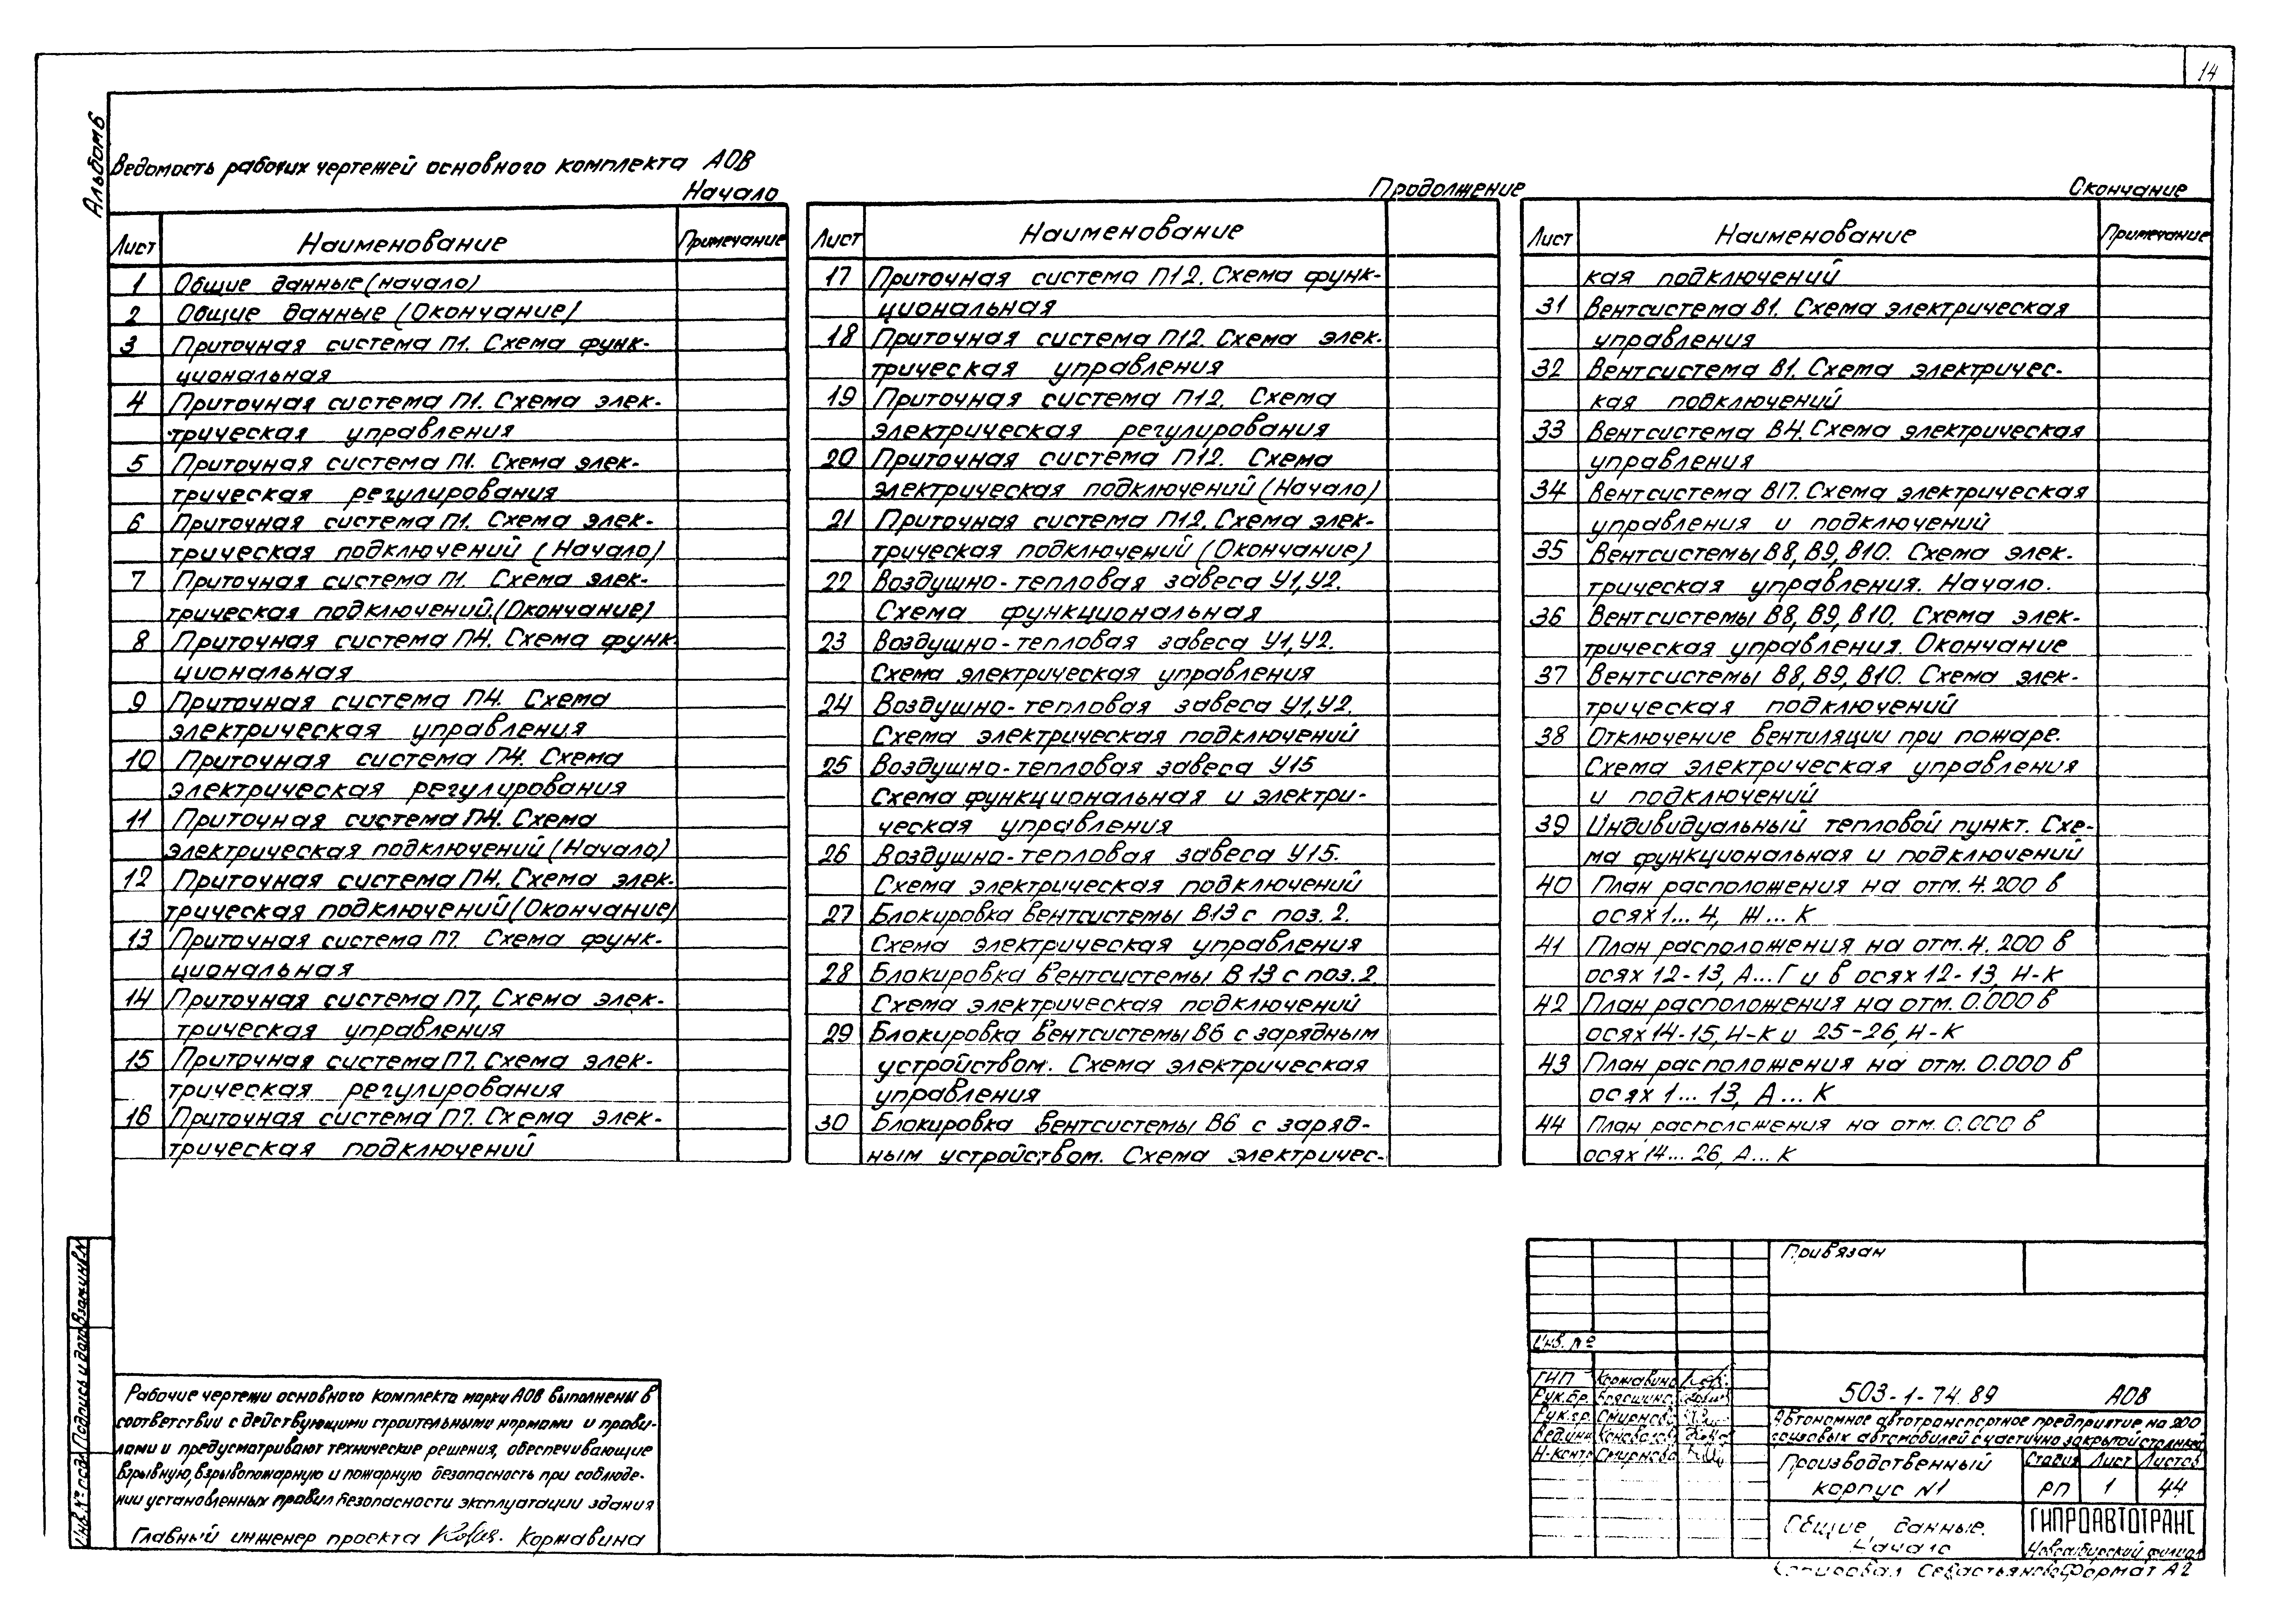 14
Альбом 6
Ведомость рабочих чертежей основного комплекта АОВ
Начало
Лист Наименование Примечание
1 Общие данные (начало)
2 Общие данные (Окончание)
3 Приточная система П1. Схема функ-
циональная
4 Приточная система П1. Схема элек-
трическая управления
5 Приточная система П1. Схема элек-
трическая регулирования
6 Приточная система П1. Схема элек-
трическая подключений (Начало)
7 Приточная система П1. Схема элек-
трическая подключений.(Окончание)
8 Приточная система П4. Схема функ-
циональная
9 Приточная система П4. Схема
электрическая управления
10 Приточная система П4. Схема
электрическая регулирования
11 Приточная система П4. Схема
электрическая подключений (Начало)
12 Приточная система П4. Схема элек-
трическая подключений (Окончание)
13 Приточная система П7. Схема функ-
циональная
14 Приточная система П7. Схема элек-
трическая управления
15 Приточная система П7. Схема элек-
трическая регулирования
16 Приточная система П7. Схема элек-
трическая подключений
Продолжение
Лист Наименование
17 Приточная система П12. Схема функ-
циональная
18 Приточная система П12. Схема элек-
трическая управления
19 Приточная система П12. Схема
электрическая регулирования
20 Приточная система П12. Схема
электрическая подключений (Начало)
21 Приточная система П12. Схема элек-
трическая подключений (Окончание)
22 Воздушно-тепловая завеса У1, У2.
Схема функциональная
23 Воздушно-тепловая завеса У1, У2.
Схема электрическая управления
24 Воздушно-тепловая завеса У1, У2.
Схема электрическая подключений
25 Воздушно-тепловая завеса У15
Схема функциональная и электри-
ческая управления
26 Воздушно-тепловая завеса У15.
Схема электрическая подключений
27 Блокировка вентсистемы В13 с поз. 2.
Схема электрическая управления
28 Блокировка вентсистемы В13 с поз. 2.
Схема электрическая подключений
29 Блокировка вентсистемы В6 с зарядным
устройством. Схема электрическая
управления
30 Блокировка вентсистемы В6 с заряд-
ным устройством. Схема электричес-
Окончание
Лист Наименование Примечание
кая подключений
31 Вентсистема В1. Схема электрическая
управления
32 Вентсистема В1. Схема электричес-
кая подключений
33 Вентсистема В4. Схема электрическая
управления
34 Вентсистема В17. Схема электрическая
управления и подключений
35 Вентсистемы В8, В9, В10. Схема элек-
трическая управления. Начало.
36 Вентсистемы В8, В9, В10. Схема элек-
трическая управления. Окончание
37 Вентсистемы В8, В9, В10. Схема элек-
трическая подключений
38 Отключение вентиляции при пожаре.
Схема электрическая управления
и подключений
39 Индивидуальный тепловой пункт. Схе-
ма функциональная и подключений
40 План расположения на отм. 4.200 в
осях 1... 4, Ж... К
41 План расположения на отм. 4.200 в
осях 12-13, А...Г и в осях 12-13, И-К
42 План расположения на отм. 0.000 в
осях 14-15, И-К и 25-26, И-К
43 План расположения на отм. 0.000 в
осях 1... 13, А...К
44 План расположения на отм. 0.000 в
осях 14... 26, А...К
Взам.инв.N
Подпись и дата
Инв. № подл.
Рабочие чертежи основного комплекта марки АОВ выполнены в
соответствии с действующими строительными нормами и прави-
лами и предусматривают технические решения, обеспечивающие
взрывную, взрывопожарную и пожарную безопасность при соблюде-
нии установленных правил безопасности эксплуатации здания
Главный инженер проекта Коржавина
Привязан
Инв. №
ГИП Коржавина
Рук.бр.
Рук.гр. Смирнова
Вед.инж
Н-контр Смирнова
503-1-74.89 АОВ
Автономное автотранспортное предприятие на 200
грузовых автомобилей с частично закрытой стоянкой
Производственный
корпус N1
Стадия Лист Листов
РП 1 44
Общие данные.
Начало
ГИПРОАВТОТРАНС
Новосибирский филиал
Копировал Севастьянова Формат А2